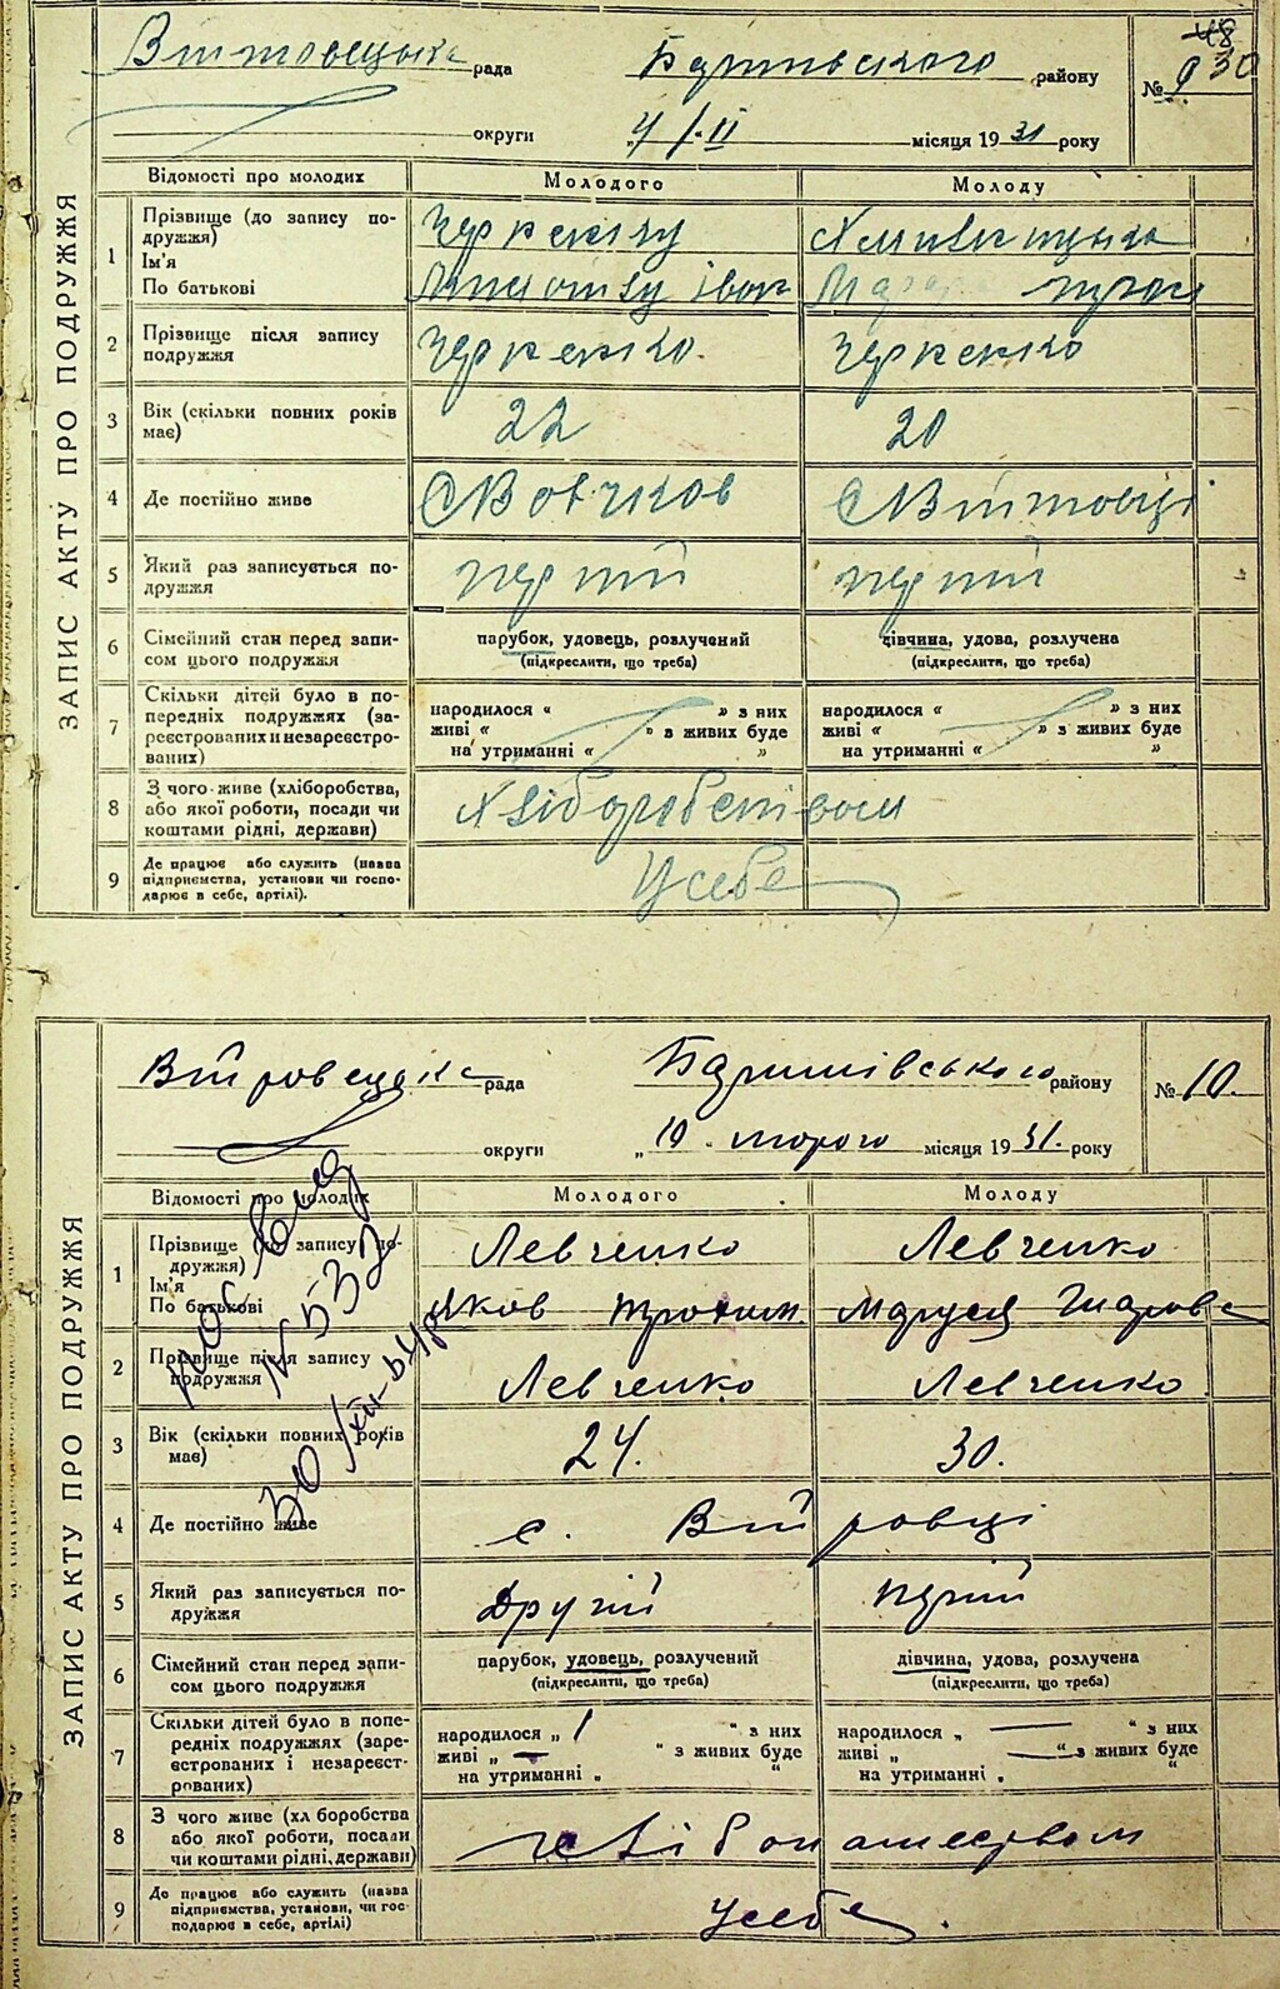 48
Вітовецька рада Баришвського району № 9 30
округи „4/-II місяця 1931 року
ЗАПИС АКТУ ПРО ПОДРУЖЖЯ
Відомості про молодих Молодого Молоду
1 Прізвище (до запису по-
дружжя)
Ім'я
По батькові
2 Прізвище після запису
подружжя
Черкенко. Черкенко
3 Вік (скільки повних років
має)
22 20
4 Де постійно живе
С Вовчков С Вітовці
5 Який раз записується по-
дружжя
перший перший
6 Сімейний стан перед запи-
сом цього подружжя
парубок, удовець, розлучений дівчина, удова, розлучена
(підкреслити, що треба) (підкреслити, що треба)
7 Скільки дітей було в по-
передніх подружжях (за-
реєстрованих и незареєстро-
ваних)
народилося “ „ з них народилося “ „ з них
живі “ „ з живих буде живі “ „ з живих буде
на утриманні “ „ на утриманні “ „
8 З чого живе (хліборобства,
або якої роботи, посади чи
коштами рідні, держави)
Хліборобством
9 Де працює або служить (назва
підприємства, установи чи госпо-
дарює в себе, артілі).
У себе
Війровецька рада Баришівського району № 10.
округи „10 лютого місяця 1931. року
ЗАПИС АКТУ ПРО ПОДРУЖЖЯ
Відомості про молодих Молодого Молоду
1 Прізвище (до запису по-
дружжя)
Ім'я
По батькові
Левченко Левченко
Яков Трохим. Маруся
2 Прізвище після запису
подружжя
Левченко Левченко
3 Вік (скільки повних років
має)
24. 30.
4 Де постійно живе
с. Війровці
5 Який раз записується по-
дружжя
другий перший
6 Сімейний стан перед запи-
сом цього подружжя
парубок, удовець, розлучений дівчина, удова, розлучена
(підкреслити, що треба) (підкреслити, що треба)
7 Скільки дітей було в попе-
редніх подружжях (заре-
єстрованих і незареєст-
рованих)
народилося „ 1 “ з них народилося „ — “ з них
живі „ — “ з живих буде живі „ — “ з живих буде
на утриманні „ “ на утриманні „ “
8 З чого живе (хл боробства
або якої роботи, посади
чи коштами рідні, держави)
9 Де працює або служить (назва
підприємства, установи, чи гос-
подарює в себе, артілі)
У себе.